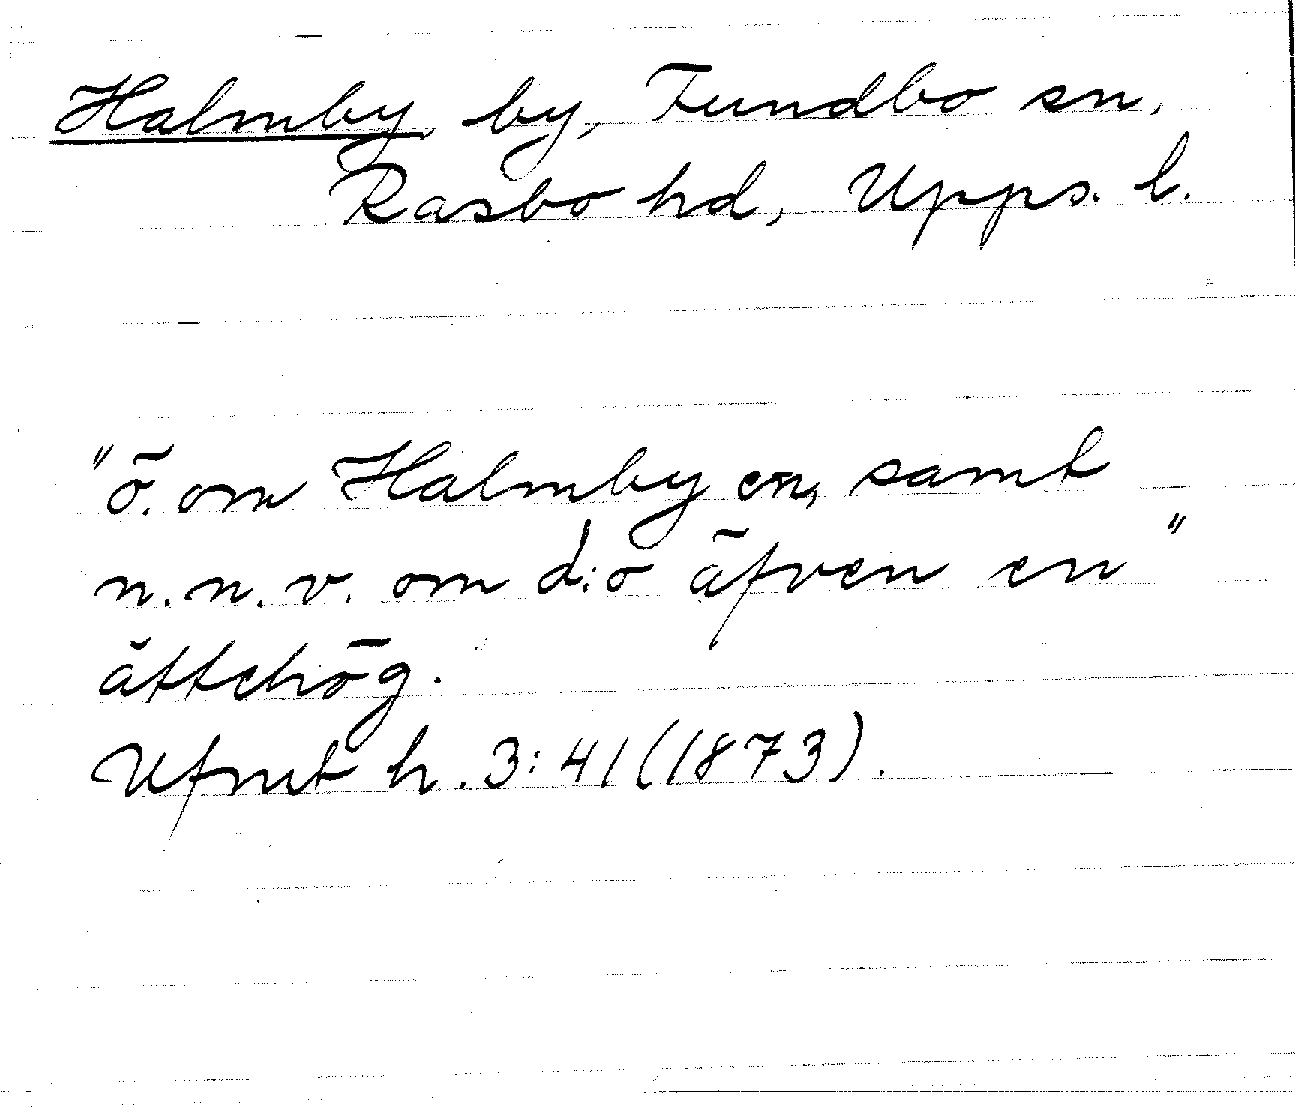 Halmby, by, Funbo sn,
Rasbo hd, Upps. l.
"ö. om Halmby en, samt
n.n.v. om d:o äfven en"
ättehög.
Ufmt h. 3:41 (1873).